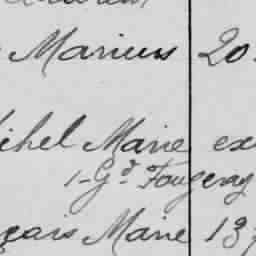 Marius 20
ichel Marie ex
1-Gd Fougeray
çais Marie 13